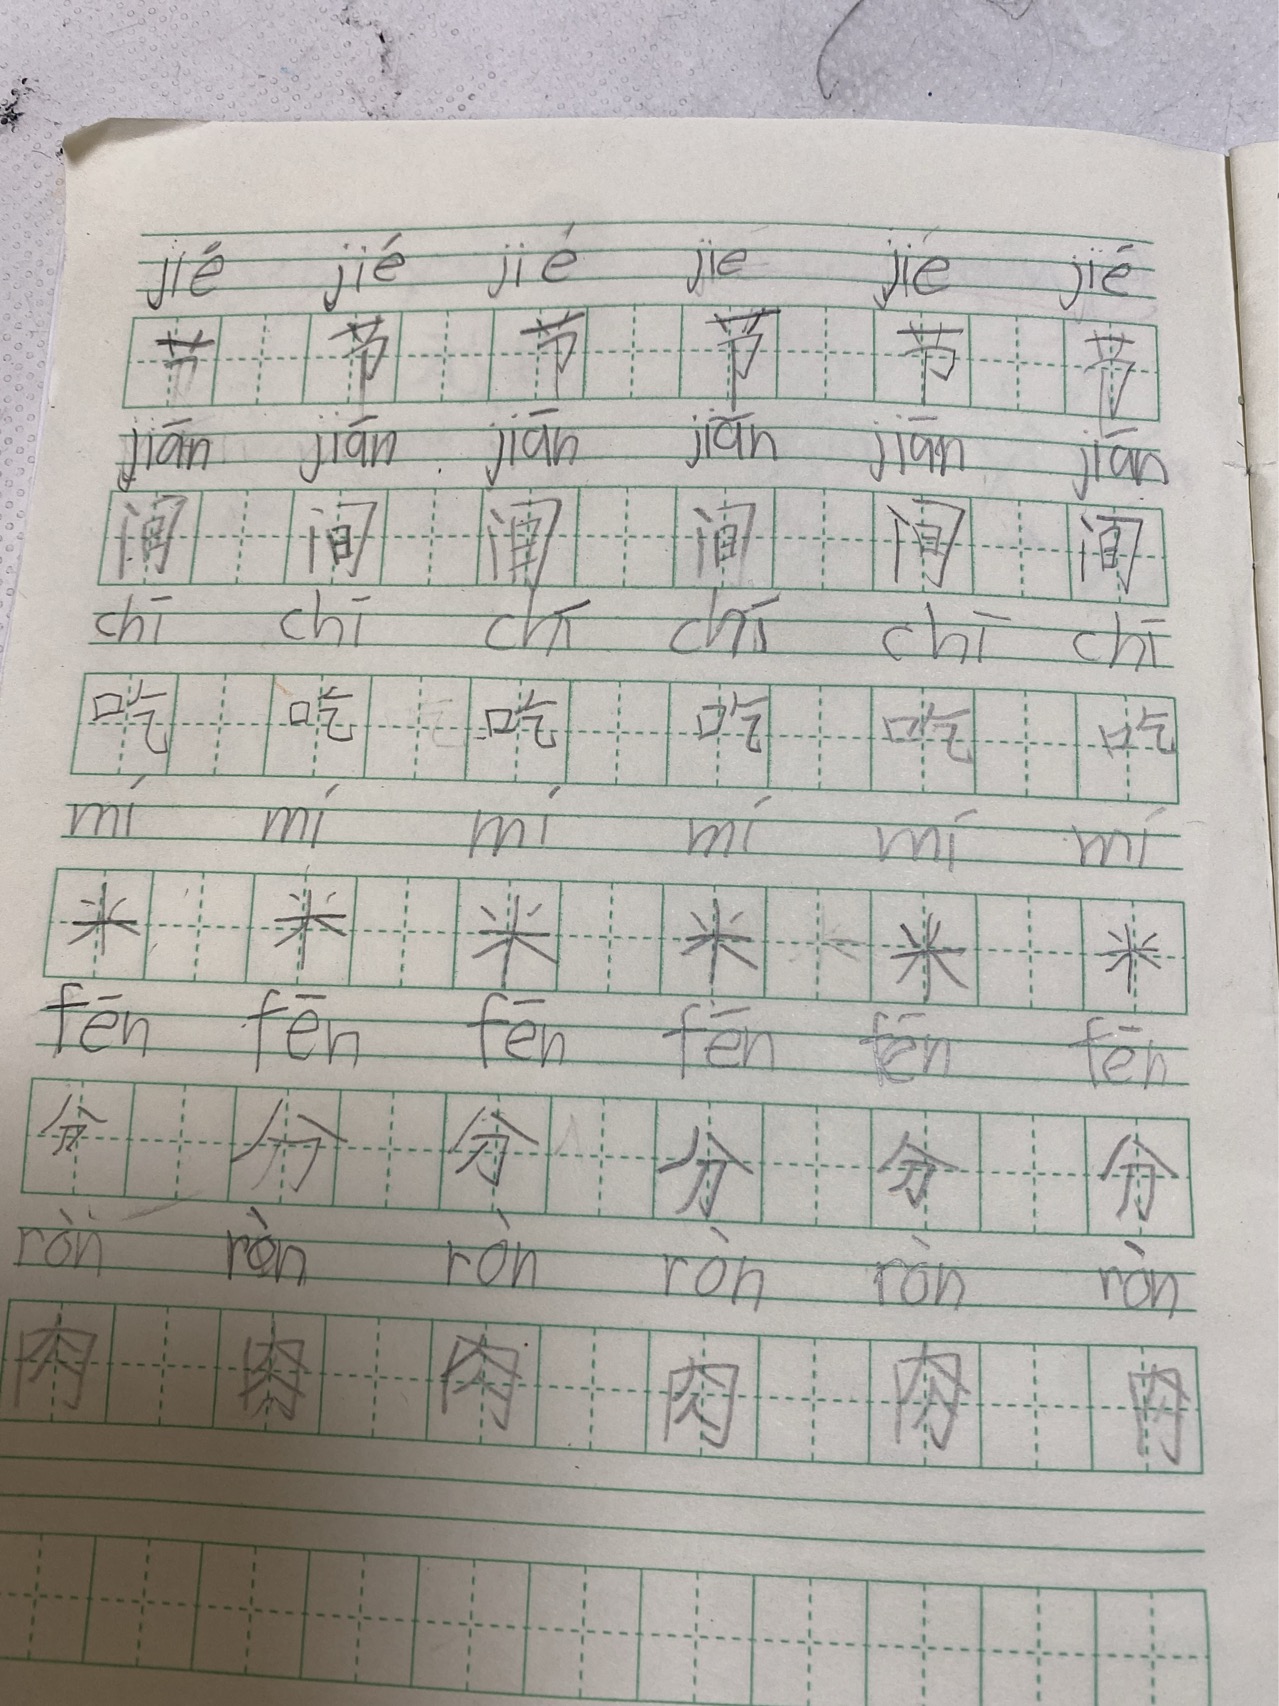 jié jié jié jie jié jié
节 节 节 节 节 节
jiān jiān jiān jiān jiān jiān
间 间 间 间 间 间
chī chī chī chī chī chī
吃 吃 吃 吃 吃 吃
mí mí mí mí mí mí
米 米 米 米 米 米
fēn fēn fēn fēn fēn fēn
分 分 分 分 分 分
ròn ròn ròn ròn ròn ròn
肉 肉 肉 肉 肉 肉